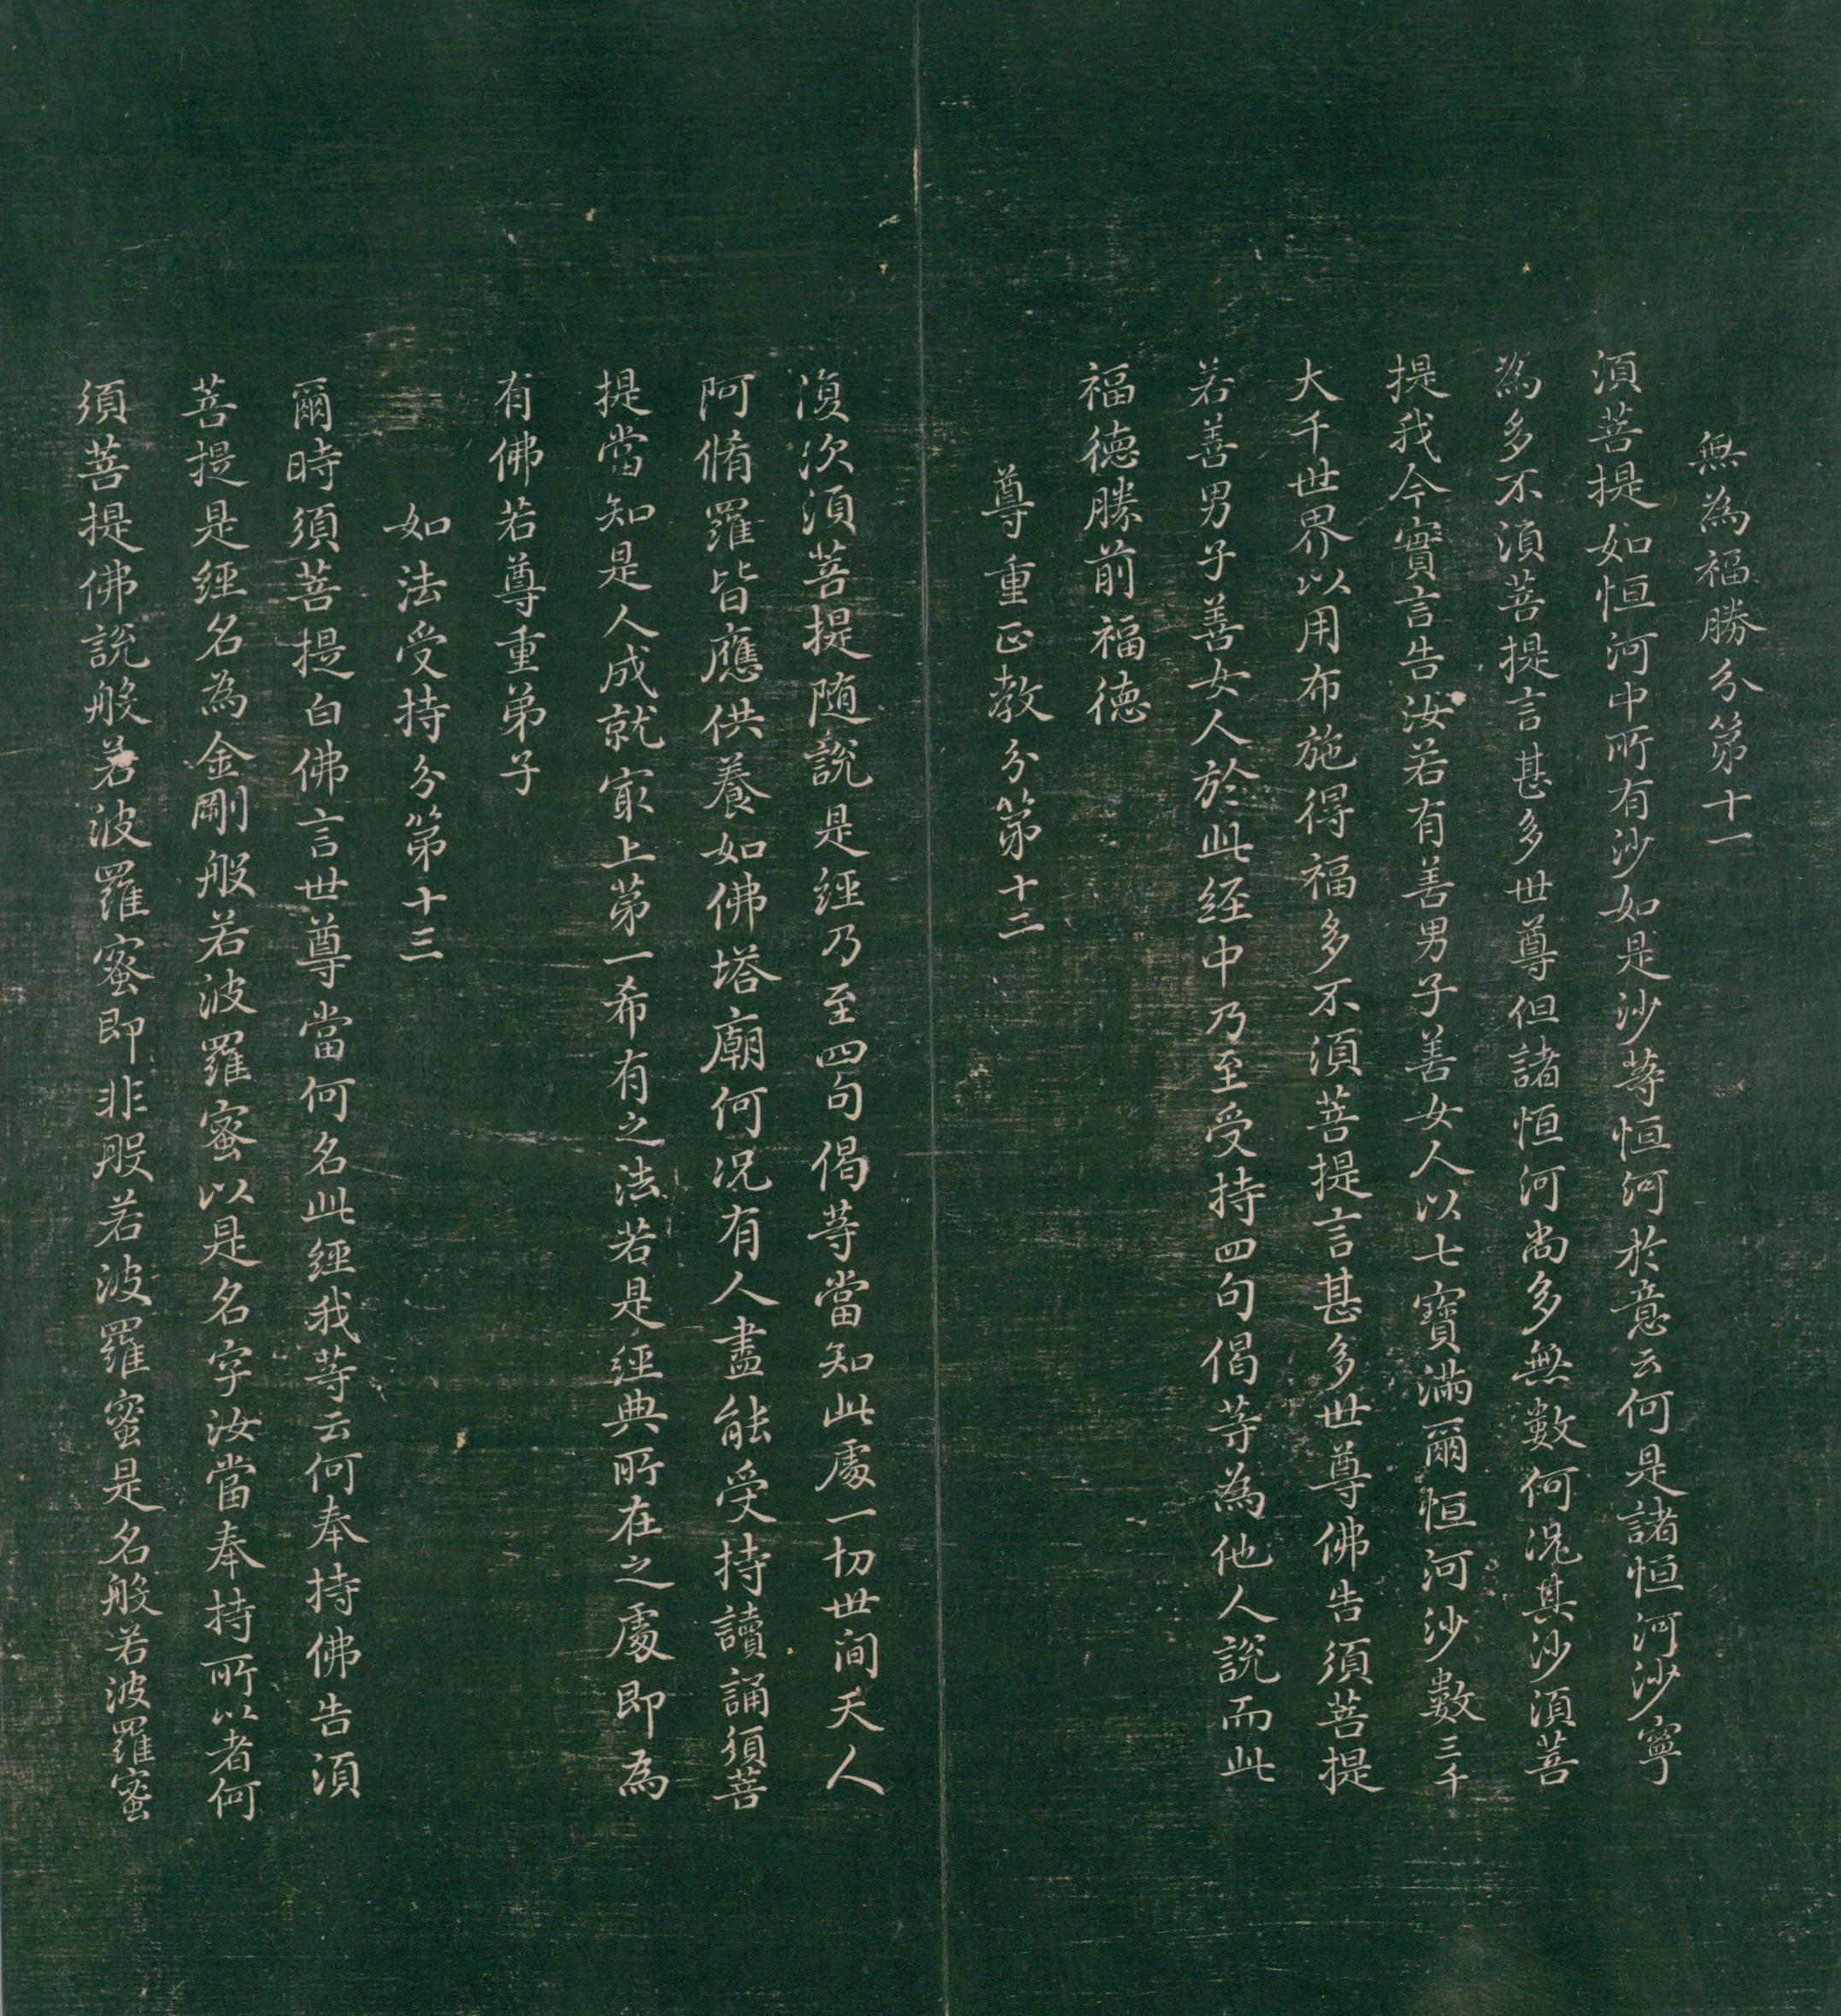 無為福勝分第十一
須菩提如恒河中所有沙如是沙等恒河於意云何是諸恒河沙寧
為多不須菩提言甚多世尊但諸恒河尚多無數何況其沙須菩
提我今實言告汝若有善男子善女人以七寶滿爾恒河沙數三千
大千世界以用布施得福多不須菩提言甚多世尊佛告須菩提
若善男子善女人於此経中乃至受持四句偈等為他人說而此
福德勝前福德
尊重正教分第十二
復次須菩提随說是經乃至四句偈等當知此處一切世间天人
阿脩羅皆應供養如佛塔廟何況有人盡能受持讀誦須菩
提當知是人成就㝡上第一希有之法若是經典所在之處即為
有佛若尊重弟子
如法受持分第十三
爾時須菩提白佛言世尊當何名此經我等云何奉持佛告須
菩提是經名為金剛般若波羅蜜以是名字汝當奉持所以者何
須菩提佛說般若波羅蜜即非般若波羅蜜是名般若波羅蜜